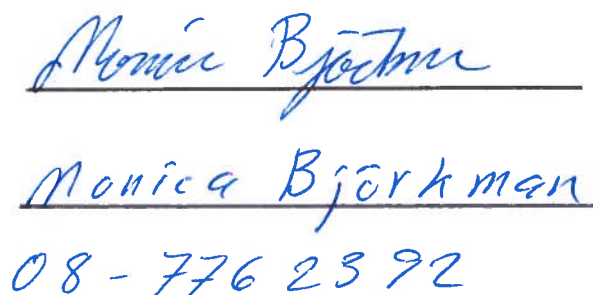 Monica Björkman
Monica Björkman
08-776 23 92